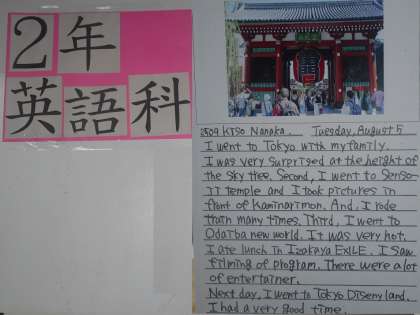 2年
英語科
2509 Kiso Nanaka. Tuesday, August 5
I went to Tokyo with my family.
I was very surprised at the height of
the sky tree. Second, I went to Senso-
ji temple and I took pictures in
front of Kaminarimon. And. I rode
train many times. Third, I went to
Odaiba new world. It was very hot.
I ate lunch in Izakaya EXILE. I saw
filming of program. There were a lot
of entertainer.
Next day, I went to Tokyo Diseny land.
I had a very good time.